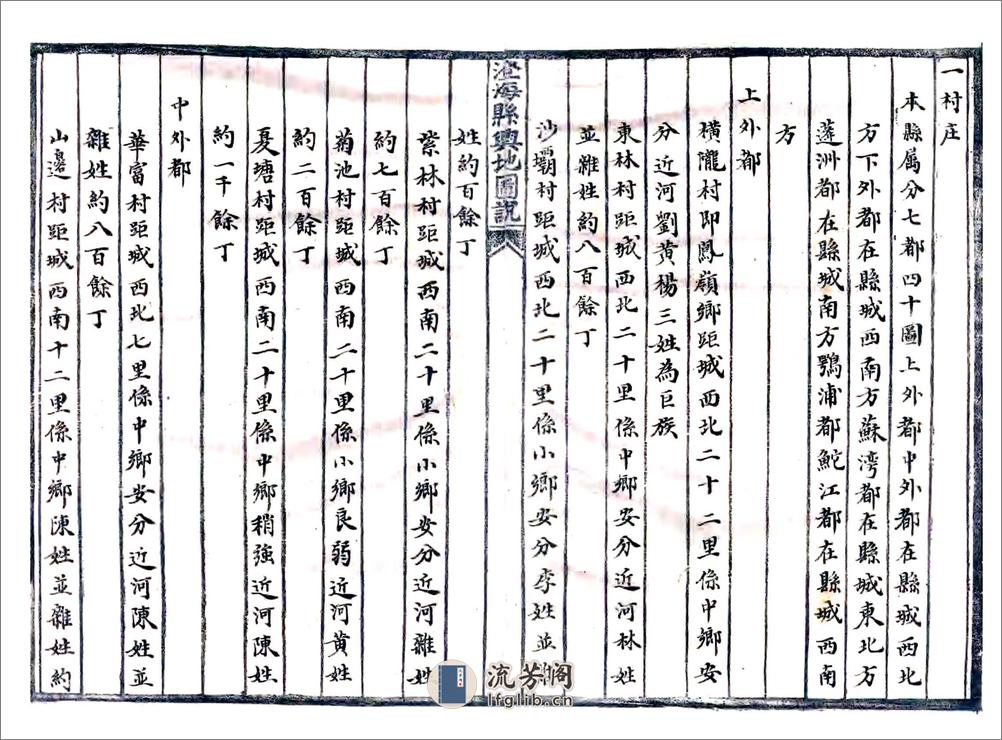 一村庄
本縣属分七都四十圖上外都中外都在縣城西北
方下外都在縣城西南方蘇湾都在縣城東北方
蓬洲都在縣城南方鶚浦都鮀江都在縣城西南
方
上外都
橫隴村即鳳嶺鄉距城西北二十二里係中鄉安
分近河劉黄楊三姓為巨族
東林村距城西北二十里係中鄉安分近河林姓
並雜姓約八百餘丁
沙壩村距城西北二十里係小鄉安分李姓並
澄海縣輿地圖說
姓約百餘丁
紫林村距城西南二十里係小鄉安分近河雜姓
約七百餘丁
菊池村距城西南二十里係小鄉良弱近河黄姓
約二百餘丁
夏塘村距城西南二十里係中鄉稍強近河陳姓
約一千餘丁
中外都
華富村距城西北七里係中鄉安分近河陳姓並
雜姓約八百餘丁
山邊村距城西南十二里係中鄉陳姓並雜姓約
流芳阁
lfglib.cn